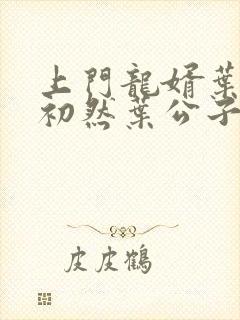 上門龍婿葉
初然葉公子
皮皮鶴